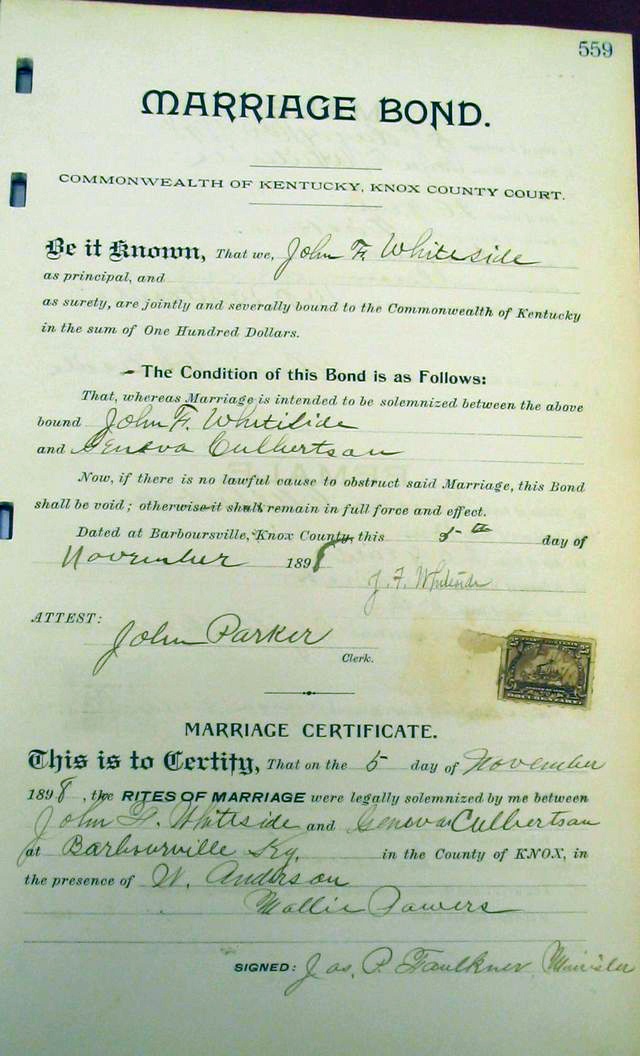 559
MARRIAGE BOND.
COMMONWEALTH OF KENTUCKY, KNOX COUNTY COURT.
Be it Known, That we, John F. Whiteside
as principal, and
as surety, are jointly and severally bound to the Commonwealth of Kentucky
in the sum of One Hundred Dollars.
The Condition of this Bond is as Follows:
That, whereas Marriage is intended to be solemnized between the above
bound John F. Whitiside
and Geneva Culbertson
Now, if there is no lawful cause to obstruct said Marriage, this Bond
shall be void; otherwise it shall remain in full force and effect.
Dated at Barboursville, Knox County, this 5th day of
November 1898
J. F. Whiteside
ATTEST:
John Parker
Clerk.
MARRIAGE CERTIFICATE.
This is to Certify, That on the 5 day of November
1898, the RITES OF MARRIAGE were legally solemnized by me between
John F. Whiteside and Geneva Culbertson
at Barbourville Ky. in the County of KNOX, in
the presence of W. Anderson
Mollie Powers
SIGNED: Jas. P. Faulkner, Minister